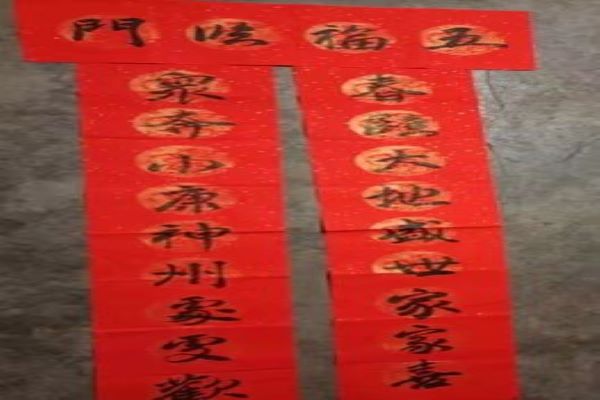 五福臨門
春臨大地盛世家家喜
眾奔小康神州處處歡